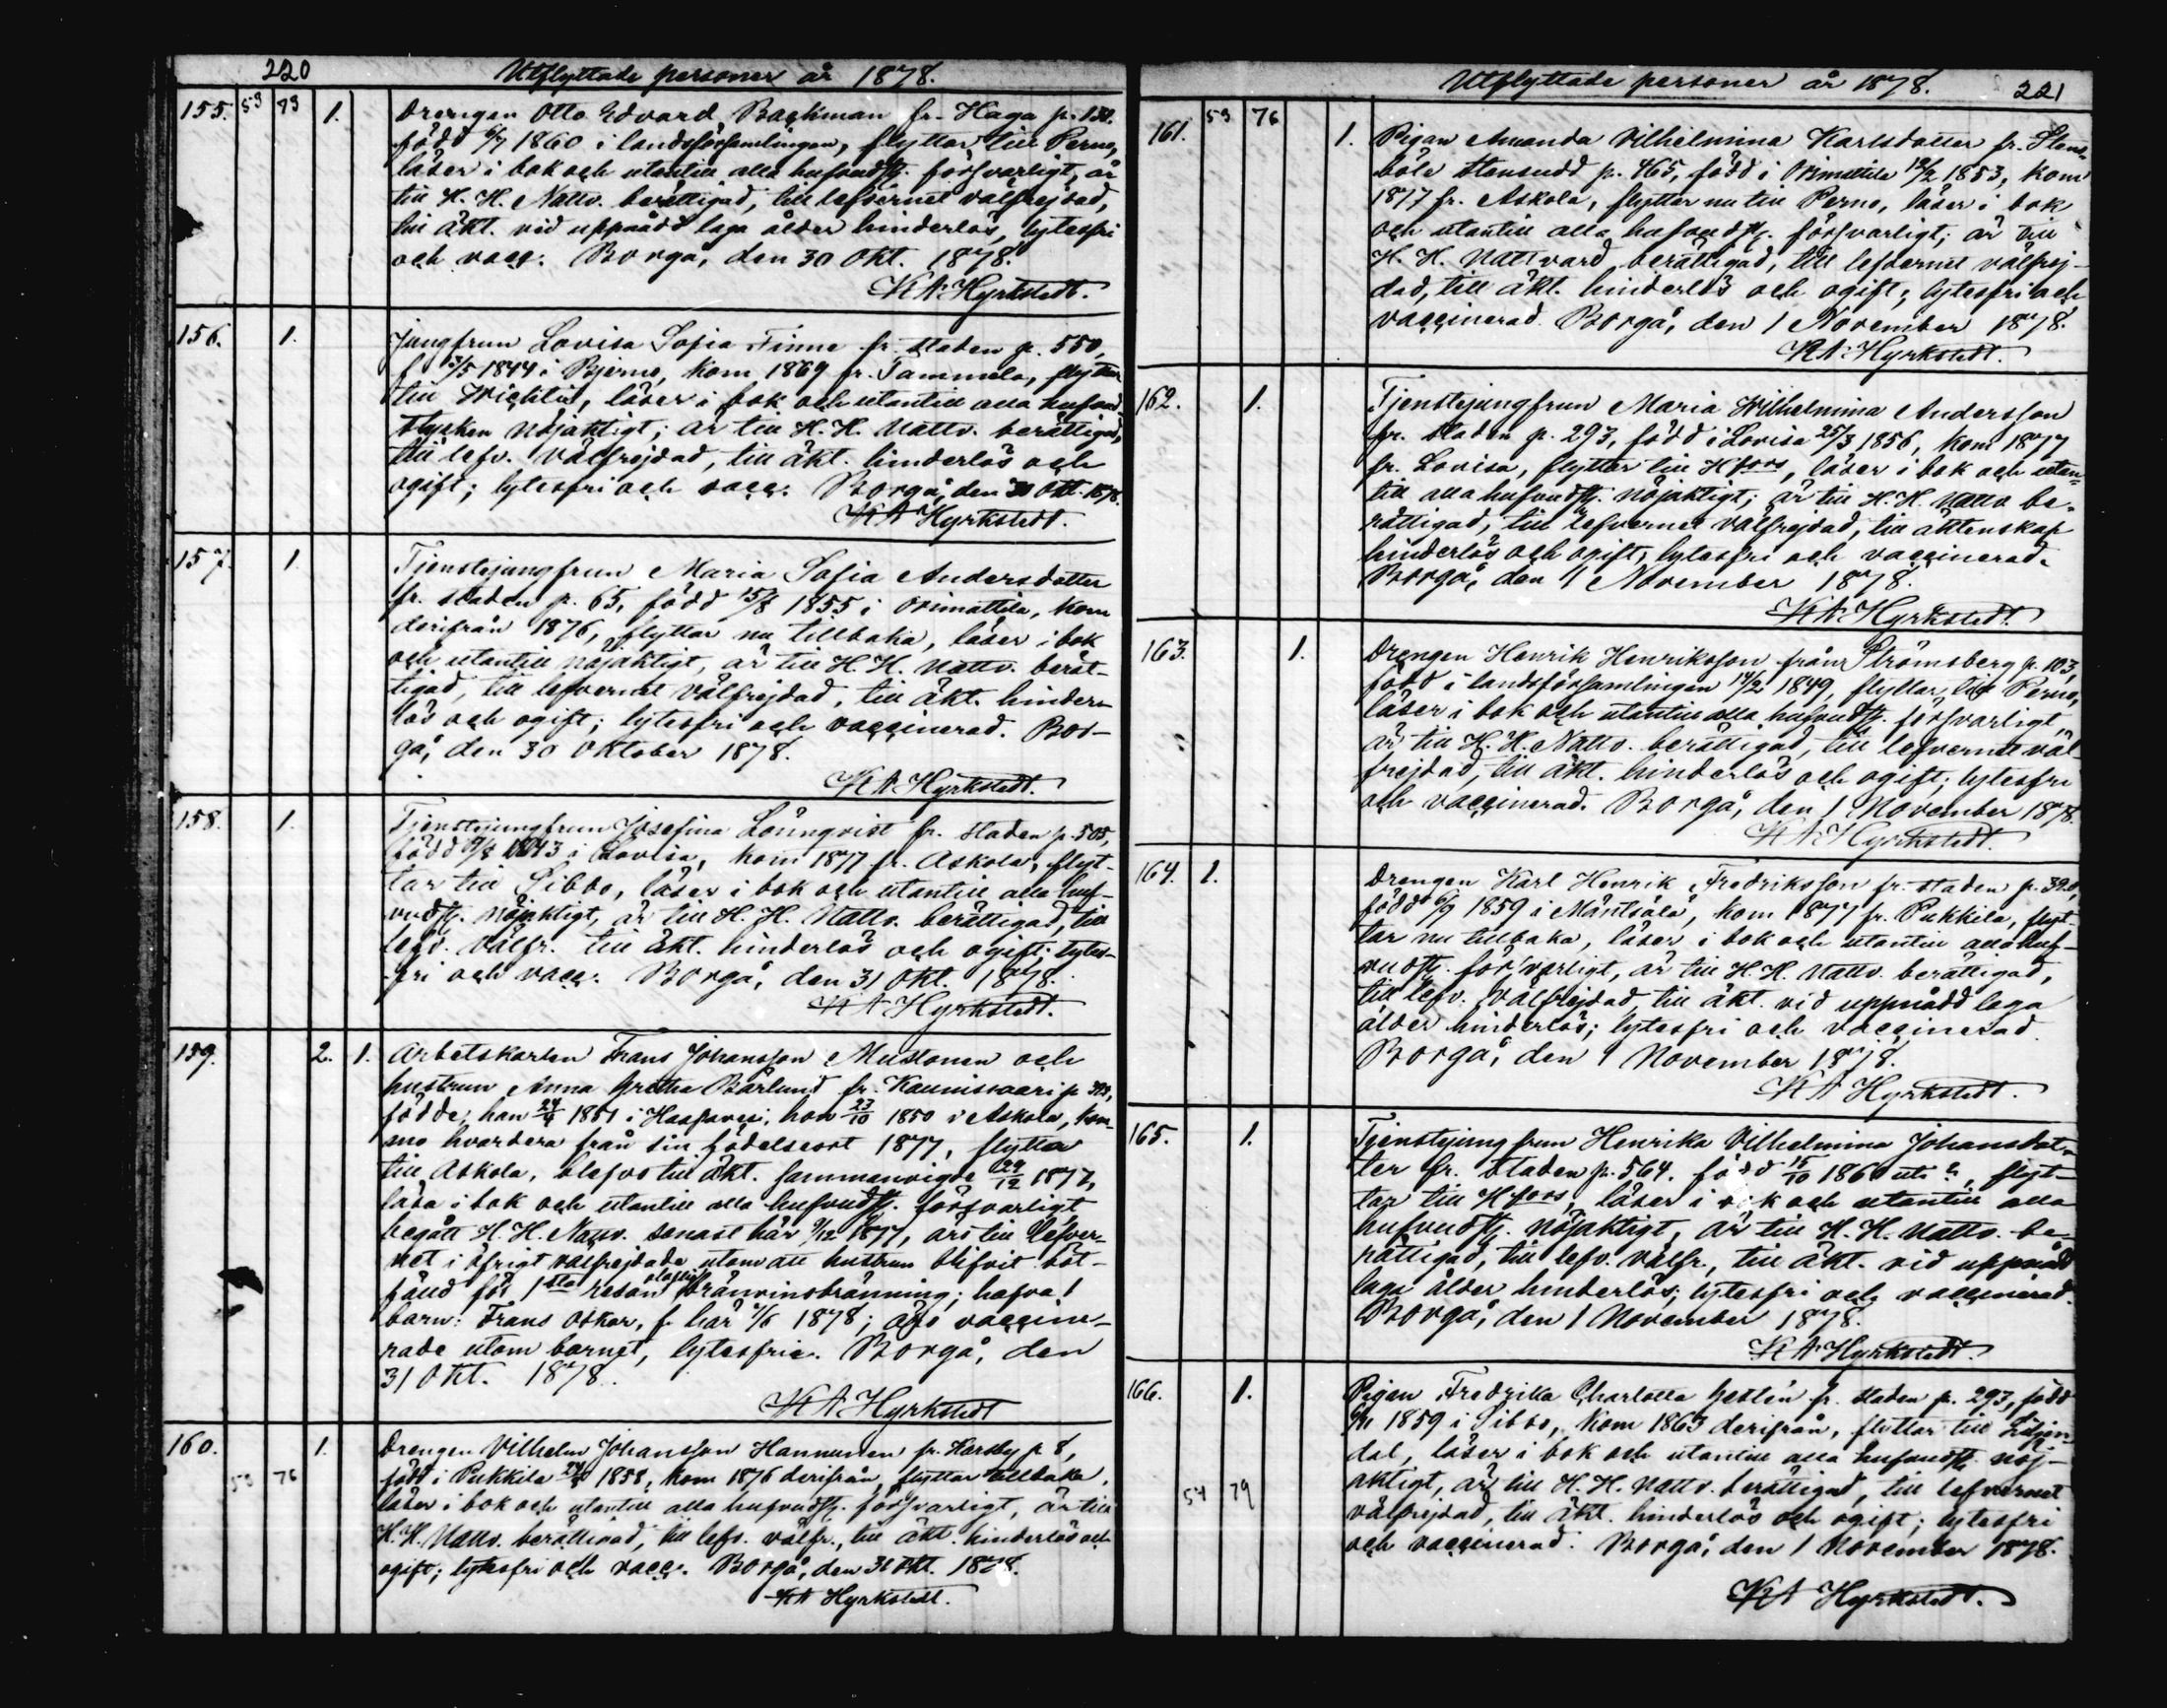 220 Utflyttade personer år 1878.
155. 53 73 1. Drengen Otto Edvard Backman fr. Haga p. 150.
född 6/7 1860 i landsförsamlingen, flyttar till Perno,
läser i bok och utantill alla hufvudst. försvarligt, är
till H. H. Nattv. berättigad, till lefvernet välfrejdad,
till äkt. vid uppnådd laga ålder hinderlös, lytesfri
och vacc. Borgå, den 30 Okt. 1878.
KA Hyrkstedt.
156. 1. Jungfrun Lovisa Sofia Finne fr. staden p. 550,
f. 3/5 1844 i Bjerno, kom 1869 fr. Tammela, flyttar
till Wichtis, läser i bok och utantill alla hufvud
stycken nöjaktigt; är till H. H. Nattv. berättigad,
till lefv. välfrejdad, till äkt. hinderlös och
ogift; lytesfri och vacc. Borgå, den 30 Okt. 1878.
KA Hyrkstedt.
157. 1. Tjenstejungfrun Maria Sofia Andersdotter
fr. staden p. 65, född 15/8 1855 i Orimattila, kom
derifrån 1876, flyttar nu tillbaka, läser i bok
och utantill nöjaktigt, är till H. H. Nattv. berät-
tigad, till lefvernet välfrejdad, till äkt. hinder-
lös och ogift; lytesfri och vaccinerad. Bor-
gå, den 30 Oktober 1878.
KA Hyrkstedt.
158. 1. Tjenstejungfrun Josefina Lönnqvist fr. staden p. 505,
född 1843 i Lovisa, kom 1877 fr. Askola, flyt-
tar till Sibbo, läser i bok och utantill alla huf-
vudst. nöjaktigt, är till H. H. Nattv. berättigad, till
lefv. välfr. till äkt. hinderlös och ogift; lytes-
fri och vacc. Borgå, den 31 Okt. 1878.
KA Hyrkstedt.
159. 2. 1. Arbetskarlen Frans Johansson Mustonen och
hustrun Anna Gretha Bärlund fr. Kaunissaari p.
födde, han 1851 i, hon 23/10 1850 i Askola, kom-
mo hvardera från sin födelseort 1877, flytta
till Askola, blefvo till äkt. sammanvigde 29/12 1877,
läsa i bok och utantill alla hufvudst. försvarligt
begått H. H. Nattv. senast här 9/12 1877, äro till lefver-
net i öfrigt välfrejdade utom att hustrun blifvit böt-
fäld för 1sta resan olaglig bränvinsbränning; hafva 1
barn: Frans Oskar, f. här 4/6 1878; äro vaccine-
rade utom barnet, lytesfrie. Borgå, den
31 Okt. 1878.
KA Hyrkstedt
160. 53 76 1. Drengen Vilhelm Johansson Hannunen fr. Karsby p 8,
född i Pukkila 1858, kom 1876 derifrån, flyttar tillbaka,
läser i bok och utantill alla hufvudst. försvarligt, är till
H. H. Nattv. berättigad, till lefv. välfr., till äkt. hinderlös och
ogift; lytesfri och vacc. Borgå, den 31 Okt. 1878.
KA Hyrkstedt.
Utflyttade personer år 1878. 221
161. 53 76 1. Pigan Amanda Vilhelmina Karlsdotter fr. Stens-
böle Stensudd p. 465, född i Orimattila 1853, kom
1877 fr. Askola, flyttar nu till Perno, läser i bok
och utantill alla hufvudst. försvarligt; är till
H. H. Nattvard berättigad, till lefvernet välfrej-
dad, till äkt. hinderlös och ogift; lytesfri och
vaccinerad. Borgå, den 1 November 1878.
KA Hyrkstedt.
162. 1. Tjenstejungfrun Maria Wilhelmina Andersson
fr. staden p. 293, född i Lovisa 25/3 1856, kom 1877
fr. Lovisa, flyttar till Hfors, läser i bok och utan-
till alla hufvudst. nöjaktigt; är till H. H. Nattv. be-
rättigad, till lefvernet välfrejdad, till äktenskap
hinderlös och ogift, lytesfri och vaccinerad.
Borgå, den 1 November 1878.
KA Hyrkstedt.
163. 1. Drengen Henrik Henriksson från Strömsberg p. 103,
född i landsförsamlingen 14/2 1849, flyttar till Perno,
läser i bok och utantill alla hufvudst. försvarligt,
är till H. H. Nattv. berättigad, till lefvernet väl-
frejdad, till äkt. hinderlös och ogift; lytesfri
och vaccinerad. Borgå, den 1 November 1878.
KA Hyrkstedt.
164. 1. Drengen Karl Henrik Fredriksson fr. staden p.
född 6/9 1859 i Mäntsälä, kom 1877 fr. Pukkila, flyt-
tar nu tillbaka, läser i bok och utantill alla huf-
vudst. försvarligt, är till H. H. Nattv. berättigad,
till lefv. välfrejdad, till äkt. vid uppnådd laga
ålder hinderlös; lytesfri och vaccinerad.
Borgå, den 1 November 1878.
KA Hyrkstedt.
165. 1. Tjenstejungfrun Henrika Vilhelmina Johansdot-
ter fr. staden p. 564. född 15/10 1860, flyt-
tar till Hfors, läser i bok och utantill alla
hufvudst. nöjaktigt, är till H. H. Nattv. be-
rättigad, till lefv. välfr., till äkt. vid uppnådd
laga ålder hinderlös; lytesfri och vaccinerad.
Borgå, den 1 November 1878.
KA Hyrkstedt.
166. 54 79 1. Pigan Fredrika Charlotta fr. staden p. 293, född
1859 i Sibbo, kom 1863 derifrån, flyttar till Liljen-
dal, läser i bok och utantill alla hufvudst. nöj-
aktigt, är till H. H. Nattv. berättigad, till lefvernet
välfrejdad, till äkt. hinderlös och ogift; lytesfri
och vaccinerad. Borgå, den 1 November 1878.
KA Hyrkstedt.